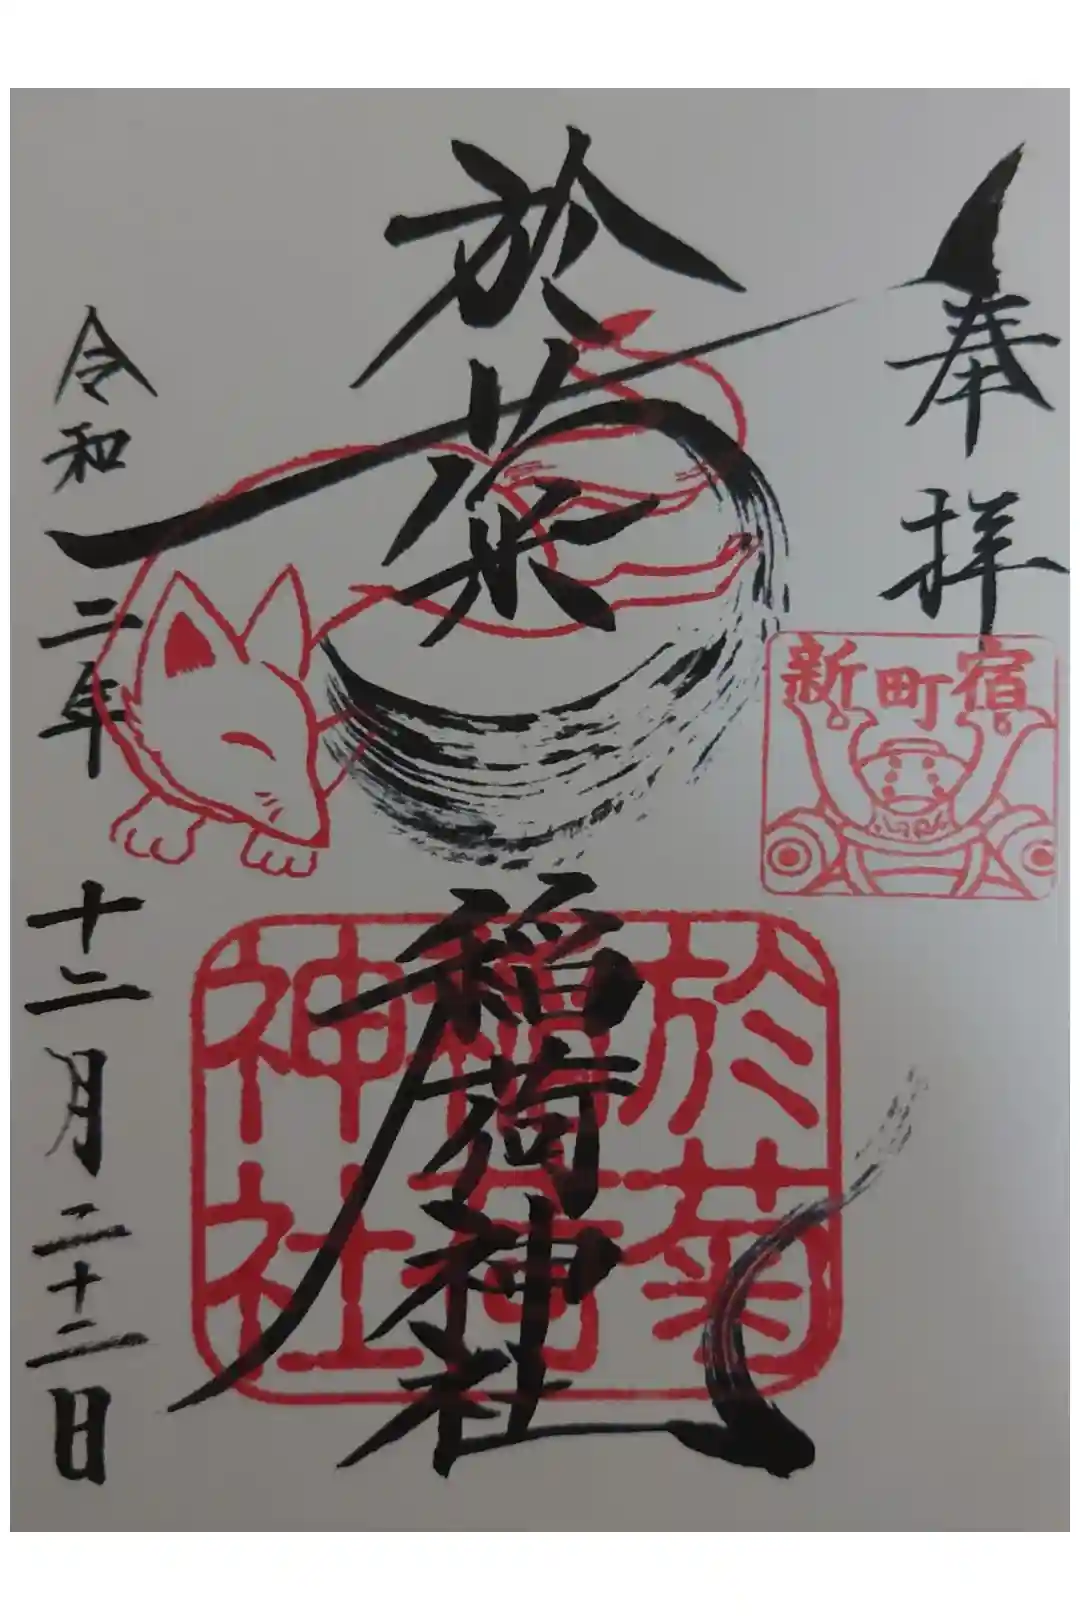 奉拝
新町宿
於菊稲荷神社
於菊
稲荷
神社
令和二年十二月二十二日